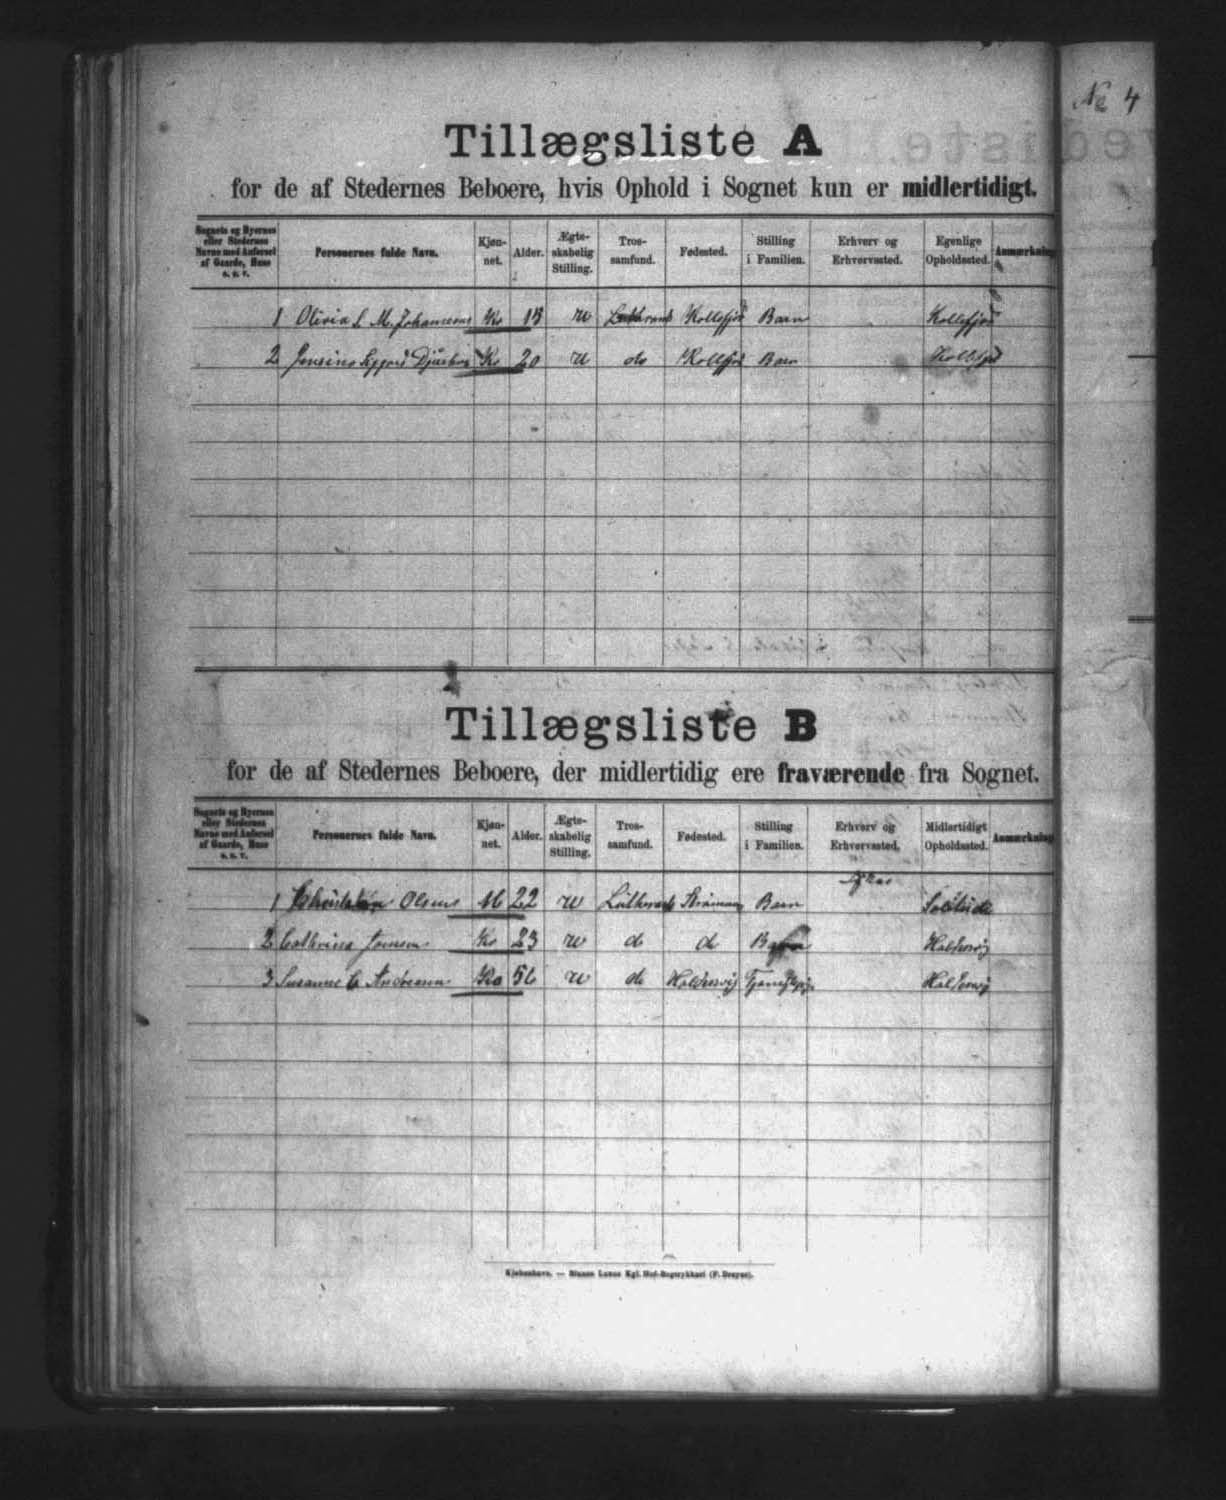 No 4
Tillægsliste A
for de af Stedernes Beboere, hvis Ophold i Sognet kun er midlertidigt.
Sognets og Byernes eller Stedernes Navne med Anførsel af Gaarde, Huse o. s. v. Personernes fulde Navn. Kjøn-net. Alder. Ægte-skabelig Stilling. Tros-samfund. Fødested. Stilling i Familien. Erhverv og Erhvervssted. Egenlige Opholdssted. Anmærkning
1 Olivia S. M. Johannesen Kv 13 u Lutheransk Kollefjord Barn Kollefjord
2 Jensine Kv 20 u do Kollefjord Barn Kollefjord
Tillægsliste B
for de af Stedernes Beboere, der midlertidig ere fraværende fra Sognet.
Sognets og Byernes eller Stedernes Navne med Anførsel af Gaarde, Huse o. s. v. Personernes fulde Navn. Kjøn-net. Alder. Ægte-skabelig Stilling. Tros-samfund. Fødested. Stilling i Familien. Erhverv og Erhvervssted. Midlertidigt Opholdssted. Anmærkning
1 Olsen M 22 u Luthersk Strømnæs Barn Solitude
2 Cathrina Joensen Kv 23 u d d Barn Haldersvig
3 Susanne C Andreasen Kv 56 u do Haldersvig Haldersvig
Kjøbenhavn. — Bianco Lunos Kgl. Hof-Bogtrykkeri (F. Dreyer).